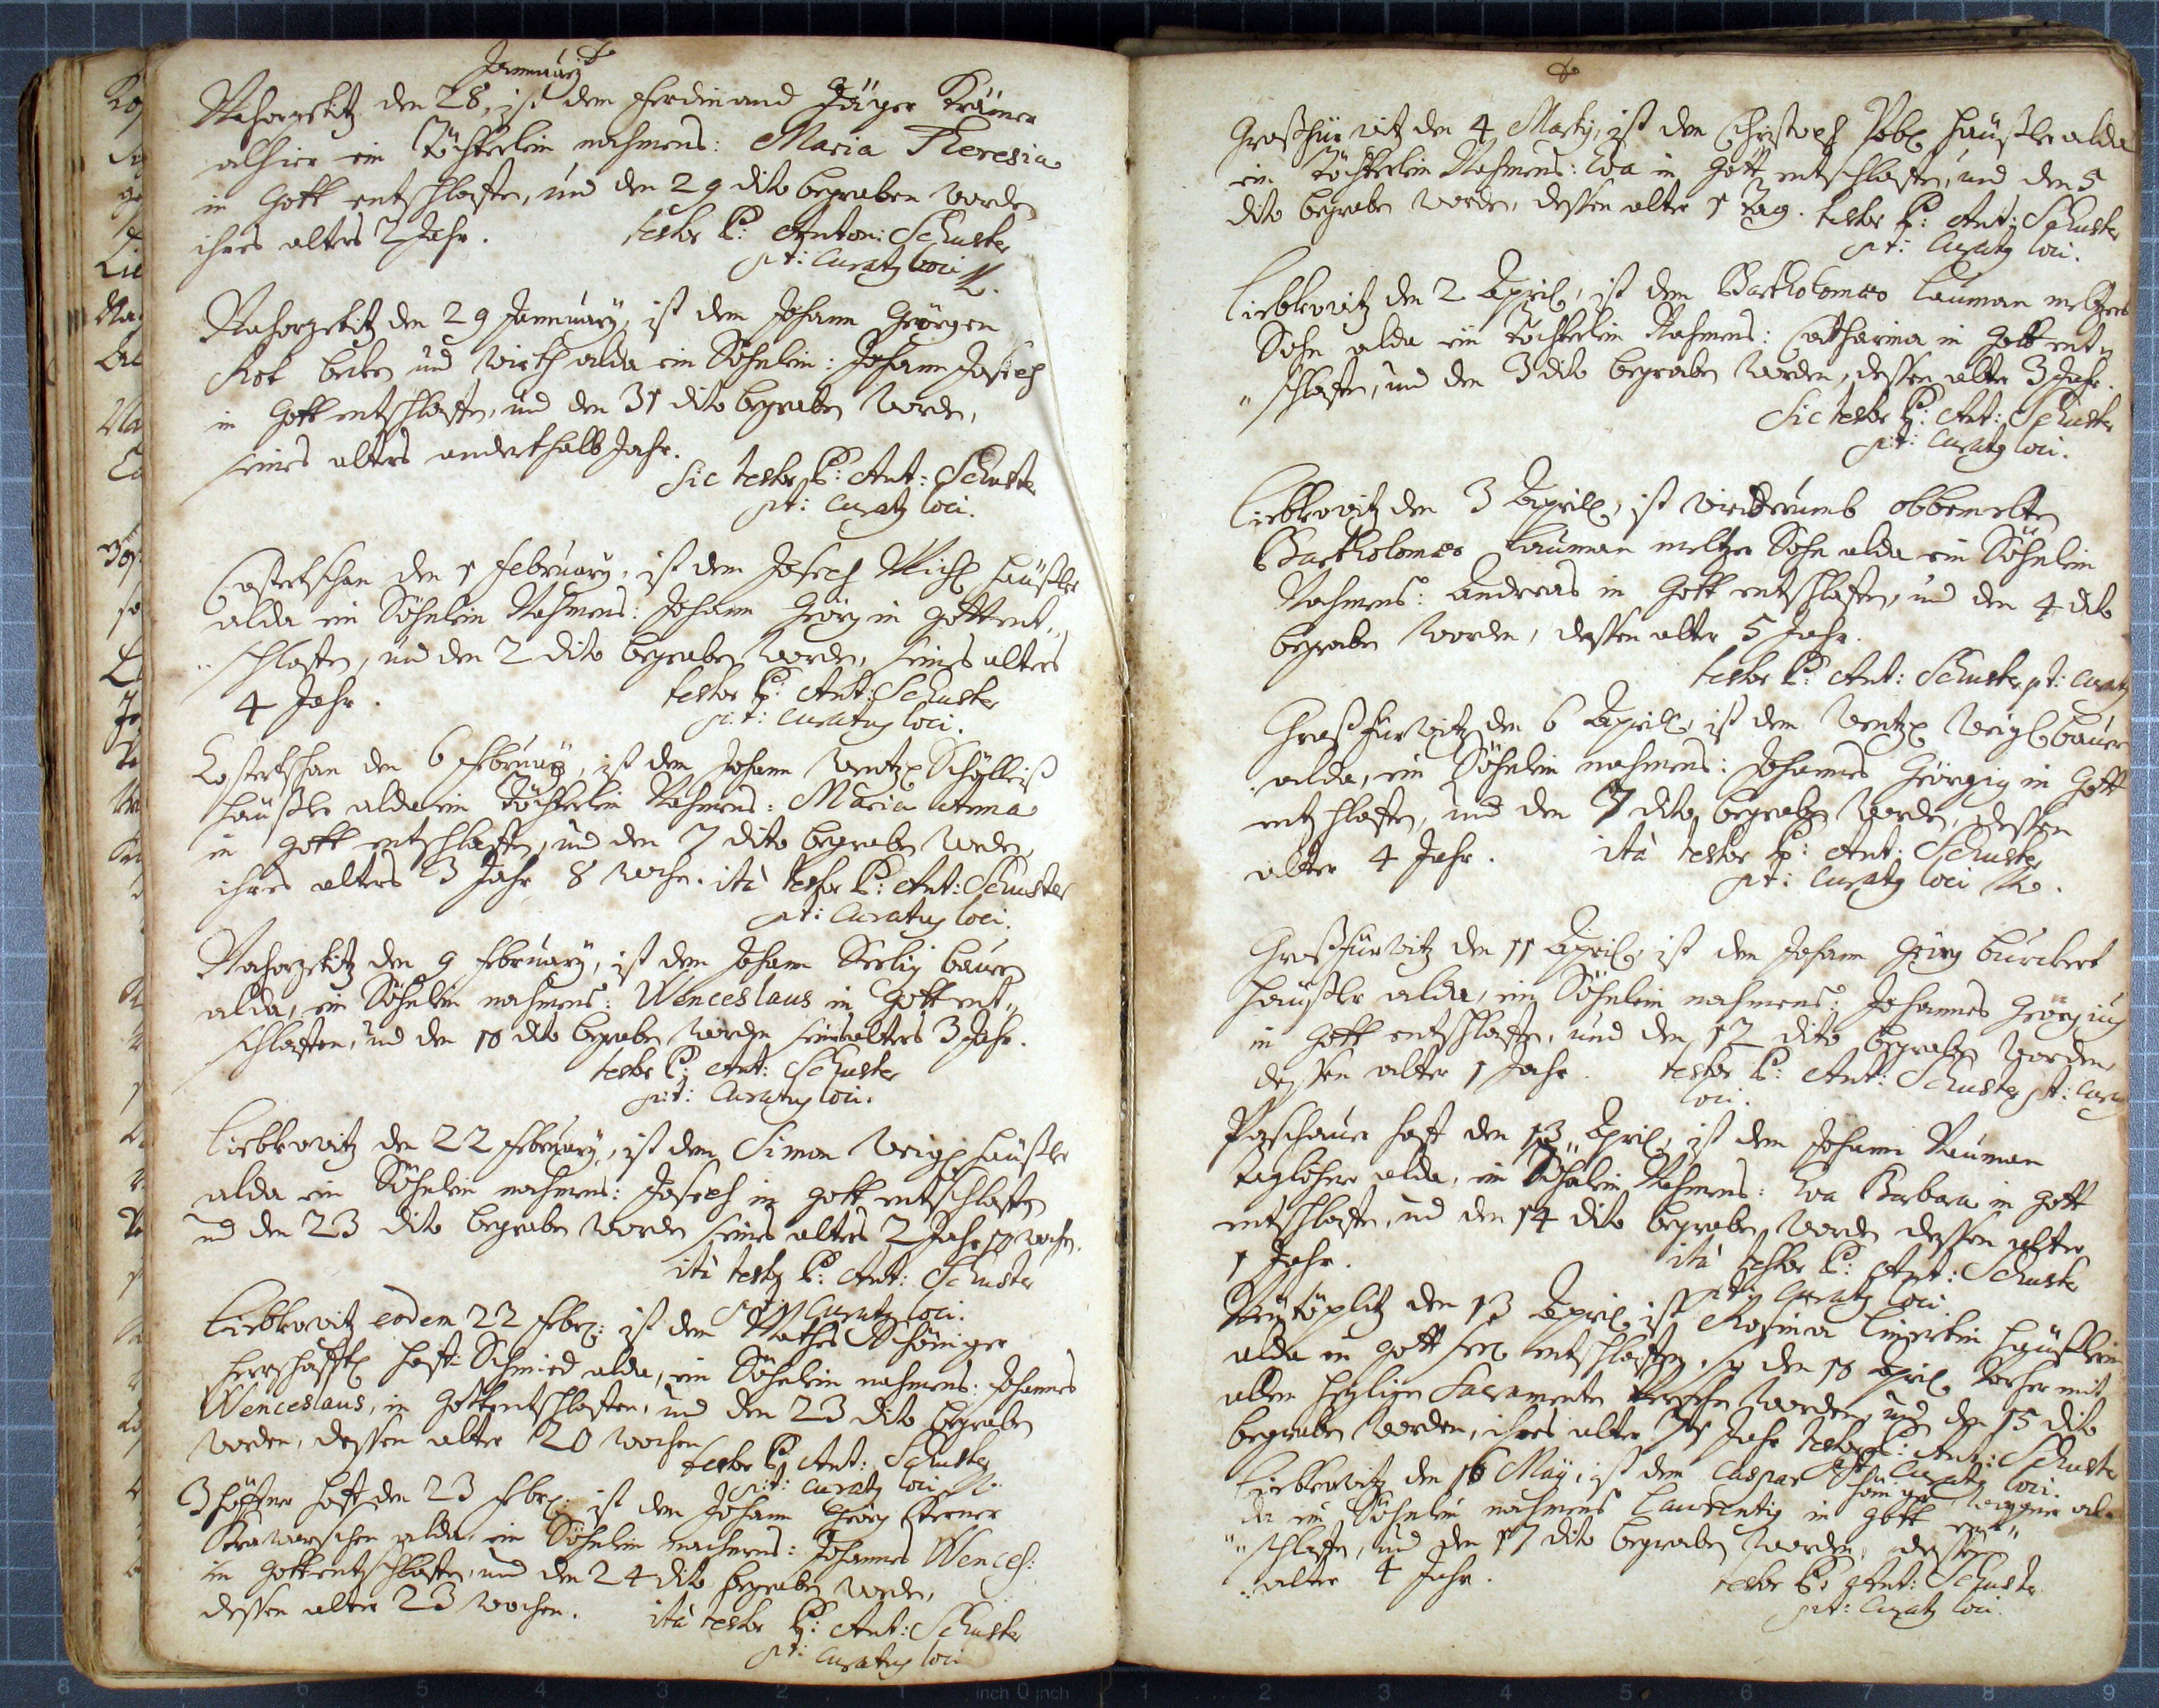 January
Nahorzetitz den 28, ist dem Ferdinand Jäger Krämer
alhier ein Töchterlein nahmens: Maria Theresia
in Gott entschlaffen, und den 29 dito begraben worden
ihres alters 2 Jahr. testor P: Anton: Schuster
p:t: Curatus loci
Nahorzetitz den 29 January, ist dem Johann Geörgen
becken und Wirth alda ein Söhnlein: Johann Joseph
in Gott entschlaffen, und den 31 dito begraben worden,
seines alters anderthalb Jahr.
Sic testor P: Ant: Schuster
p:t: Curatus loci.
den 1 February, ist dem Joseph häußler
alda ein Söhnlein Nahmens: Johann Geörg in Gott ent„
„schlaffen, und den 2 dito begraben worden, seines alters
4 Jahr. testor P: Ant: Schuster
p:t: Curatus loci.
den 6 February, ist dem Johann Wentzl
häußler alda ein Töchterlein Nahmens: Maria Anna
in Gott entschlaffen, und den 7 dito begraben worden,
ihres alters 3 Jahr 8 wochen. ità testor P: Ant: Schuster
p:t: Curatus loci.
Nahorzetitz den 9 February, ist dem Johann Seelig bauern
alda, ein Söhnlein nahmens: Wenceslaus in Gott ent„
schlaffen, und den 10 dito begraben worden seines alters 3 Jahr.
testor P: Ant: Schuster
p:t: Curatus loci.
Liebkowitz den 22 February, ist dem Simon Weigl häußler
alda ein Söhnlein nahmens: Joseph in Gott entschlaffen
und den 23 dito begraben worden seines alters 2 Jahr wochen.
ità testor P: Ant: Schuster
p:t: Curatus loci.
Liebkowitz eodem 22 Febr: ist dem Mathes
herrschafftl hoff: Schmied alda, ein Söhnlein nahmens: Johannes
Wenceslaus, in Gott entschlaffen, und den 23 dito begraben
worden, dessen alter 20 wochen
testor P: Ant: Schuster
p:t: Curatus loci
hoff den 23 Febr: ist dem Johann Geörg
alda, ein Söhnlein nahmens: Johannes Wencesl:
in Gott entschlaffen, und den 24 dito begraben worden,
dessen alter 23 wochen. ità testor P: Ant: Schuster
p:t: Curatus loci
den 4 Marty, ist dem Christoph häußler alda
ein Töchterlein Nahmens: Eva in Gott entschlaffen, und den 5
dito begraben worden, dessen alter 1 Tag. testor P: Ant: Schuster
p:t: Curatus loci.
Liebkowitz den 2 April, ist dem Bartholomæo Lauman meltzers
Sohn alda ein Töchterlein Nahmens: Catharina in Gott ent„
„schlaffen, und den 3 dito begraben worden, dessen alter 3 Jahr.
Sic testor P: Ant: Schuster
p:t: Curatus loci.
Liebkowitz den 3 April, ist wiederumb obbemelten
Bartholomæo Lauman meltzer Sohn alda ein Söhnlein
Nahmens: Andreas in Gott entschlaffen, und den 4 dito
begraben worden, dessen alter 5 Jahr.
testor P: Ant: Schuster p:t: Curatus
den 6 April, ist dem Wentzl Weigl bauern
alda, ein Söhnlein nahmens: Johannes Geörgius in Gott
entschlaffen, und den 7 dito begraben worden, dessen
alter 4 Jahr. ità testor P: Ant: Schuster
p:t: Curatus loci
den 11 April, ist dem Johann Geörg Burckert
häußler alda, ein Söhnlein nahmens: Johannes Geörgius
in Gott entschlaffen, und den 12 dito begraben worden,
dessen alter 1 Jahr. testor P: Ant: Schuster p:t: Curatus
loci.
hoff den 13 April, ist dem Johann Nauman
taglöhner alda, ein Söhnlein Nahmens: Eva Barbara in Gott
entschlaffen, und den 14 dito begraben worden dessen alter
1 Jahr. ità testor P: Ant: Schuster
p:t: Curatus loci.
den 13 April, ist Rosina häußlerin
alda in Gott seel: entschlaffen, so den 10 April vorher mit
allen heyligen Sacramenten versehen worden, und den 15 dito
begraben worden, ihres alter Jahr testor P: Ant: Schuster
p:t: Curatus loci.
Liebkowitz den 16 May, ist dem Caspar al„
da ein Söhnlein nahmens Laurentig in Gott ent„
„schlaffen, und den 17 dito begraben worden, dessen
alter 4 Jahr. testor P: Ant: Schuster
p:t: Curatus loci.